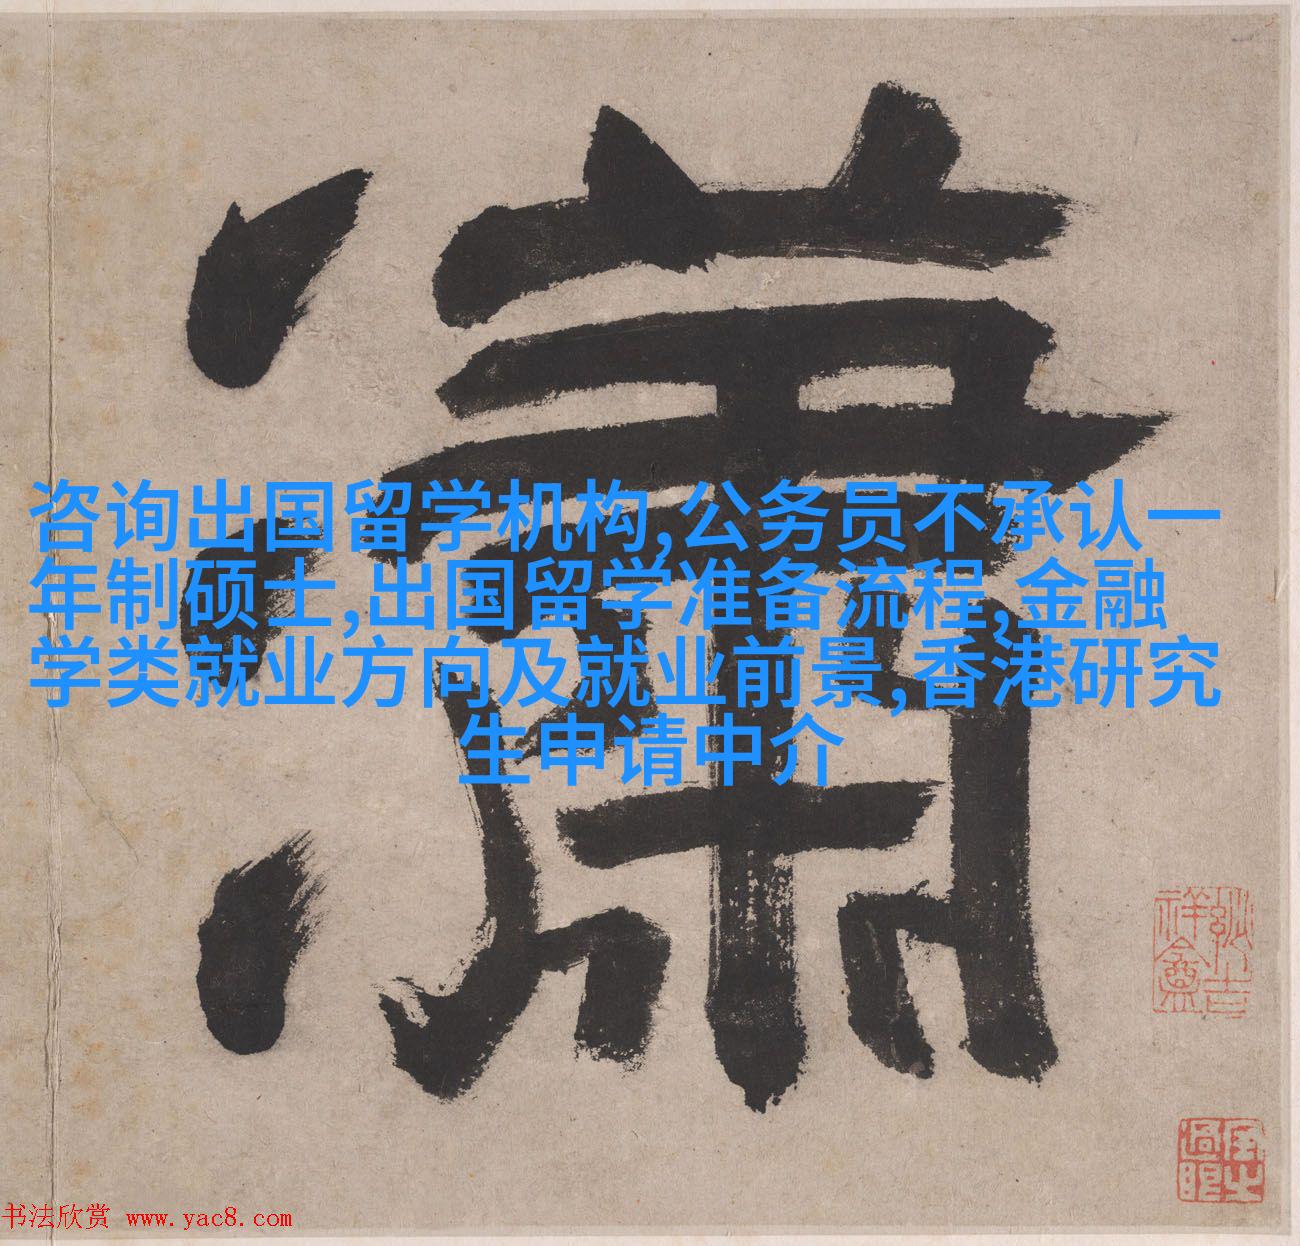 瀟
咨询出国留学机构,公务员不承认一
年制硕士,出国留学准备流程,金融
学类就业方向及就业前景,香港研究
生申请中介
书法欣赏 www.yac8.com